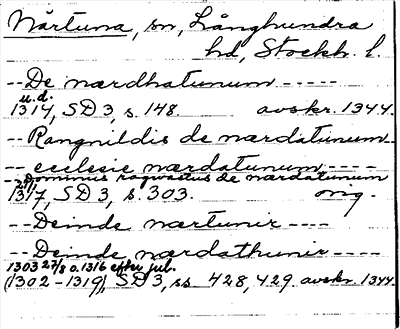 Närtuna, sn, Långhundra
hd, Stockh. l.
-- De nærdhatunum -----
u.d.
1314, SD 3, s. 148 avskr. 1344.
-- Rangnildis de nærdatunum
-- ecclesie nærdatunum ----
-- Dominus ragwastus de nærdatunum
1317, SD 3, s. 303. orig.
-- Deinde nærtunir ----
-- Deinde nærdathunir ----
1303 27/8 o. 1316 efter jul.
(1302-1319), SD 3, ss 428, 429. avskr. 1344